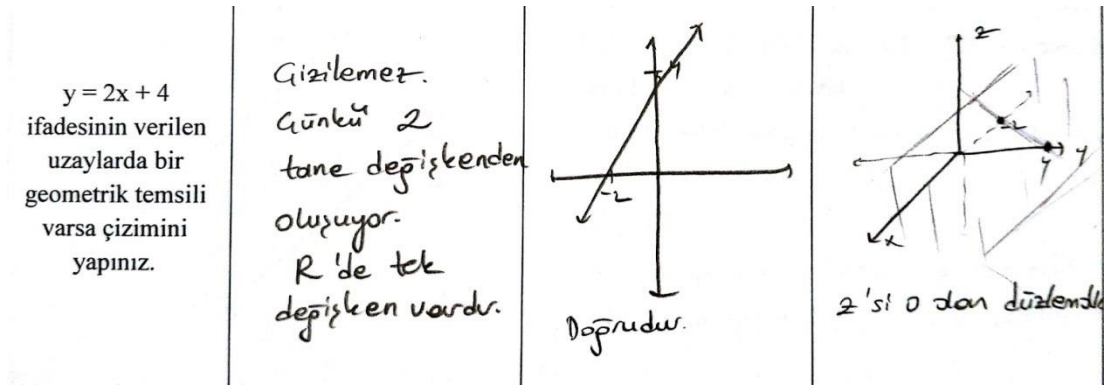 y = 2x + 4
ifadesinin verilen
uzaylarda bir
geometrik temsili
varsa çizimini
yapınız.
Çizilemez.
Çünkü 2
tane değişkenden
oluşuyor.
R'de tek
değişken vardır.
4
-2
Doğrudur.
z
-2
4
y
x
z'si 0 olan düzlemdir